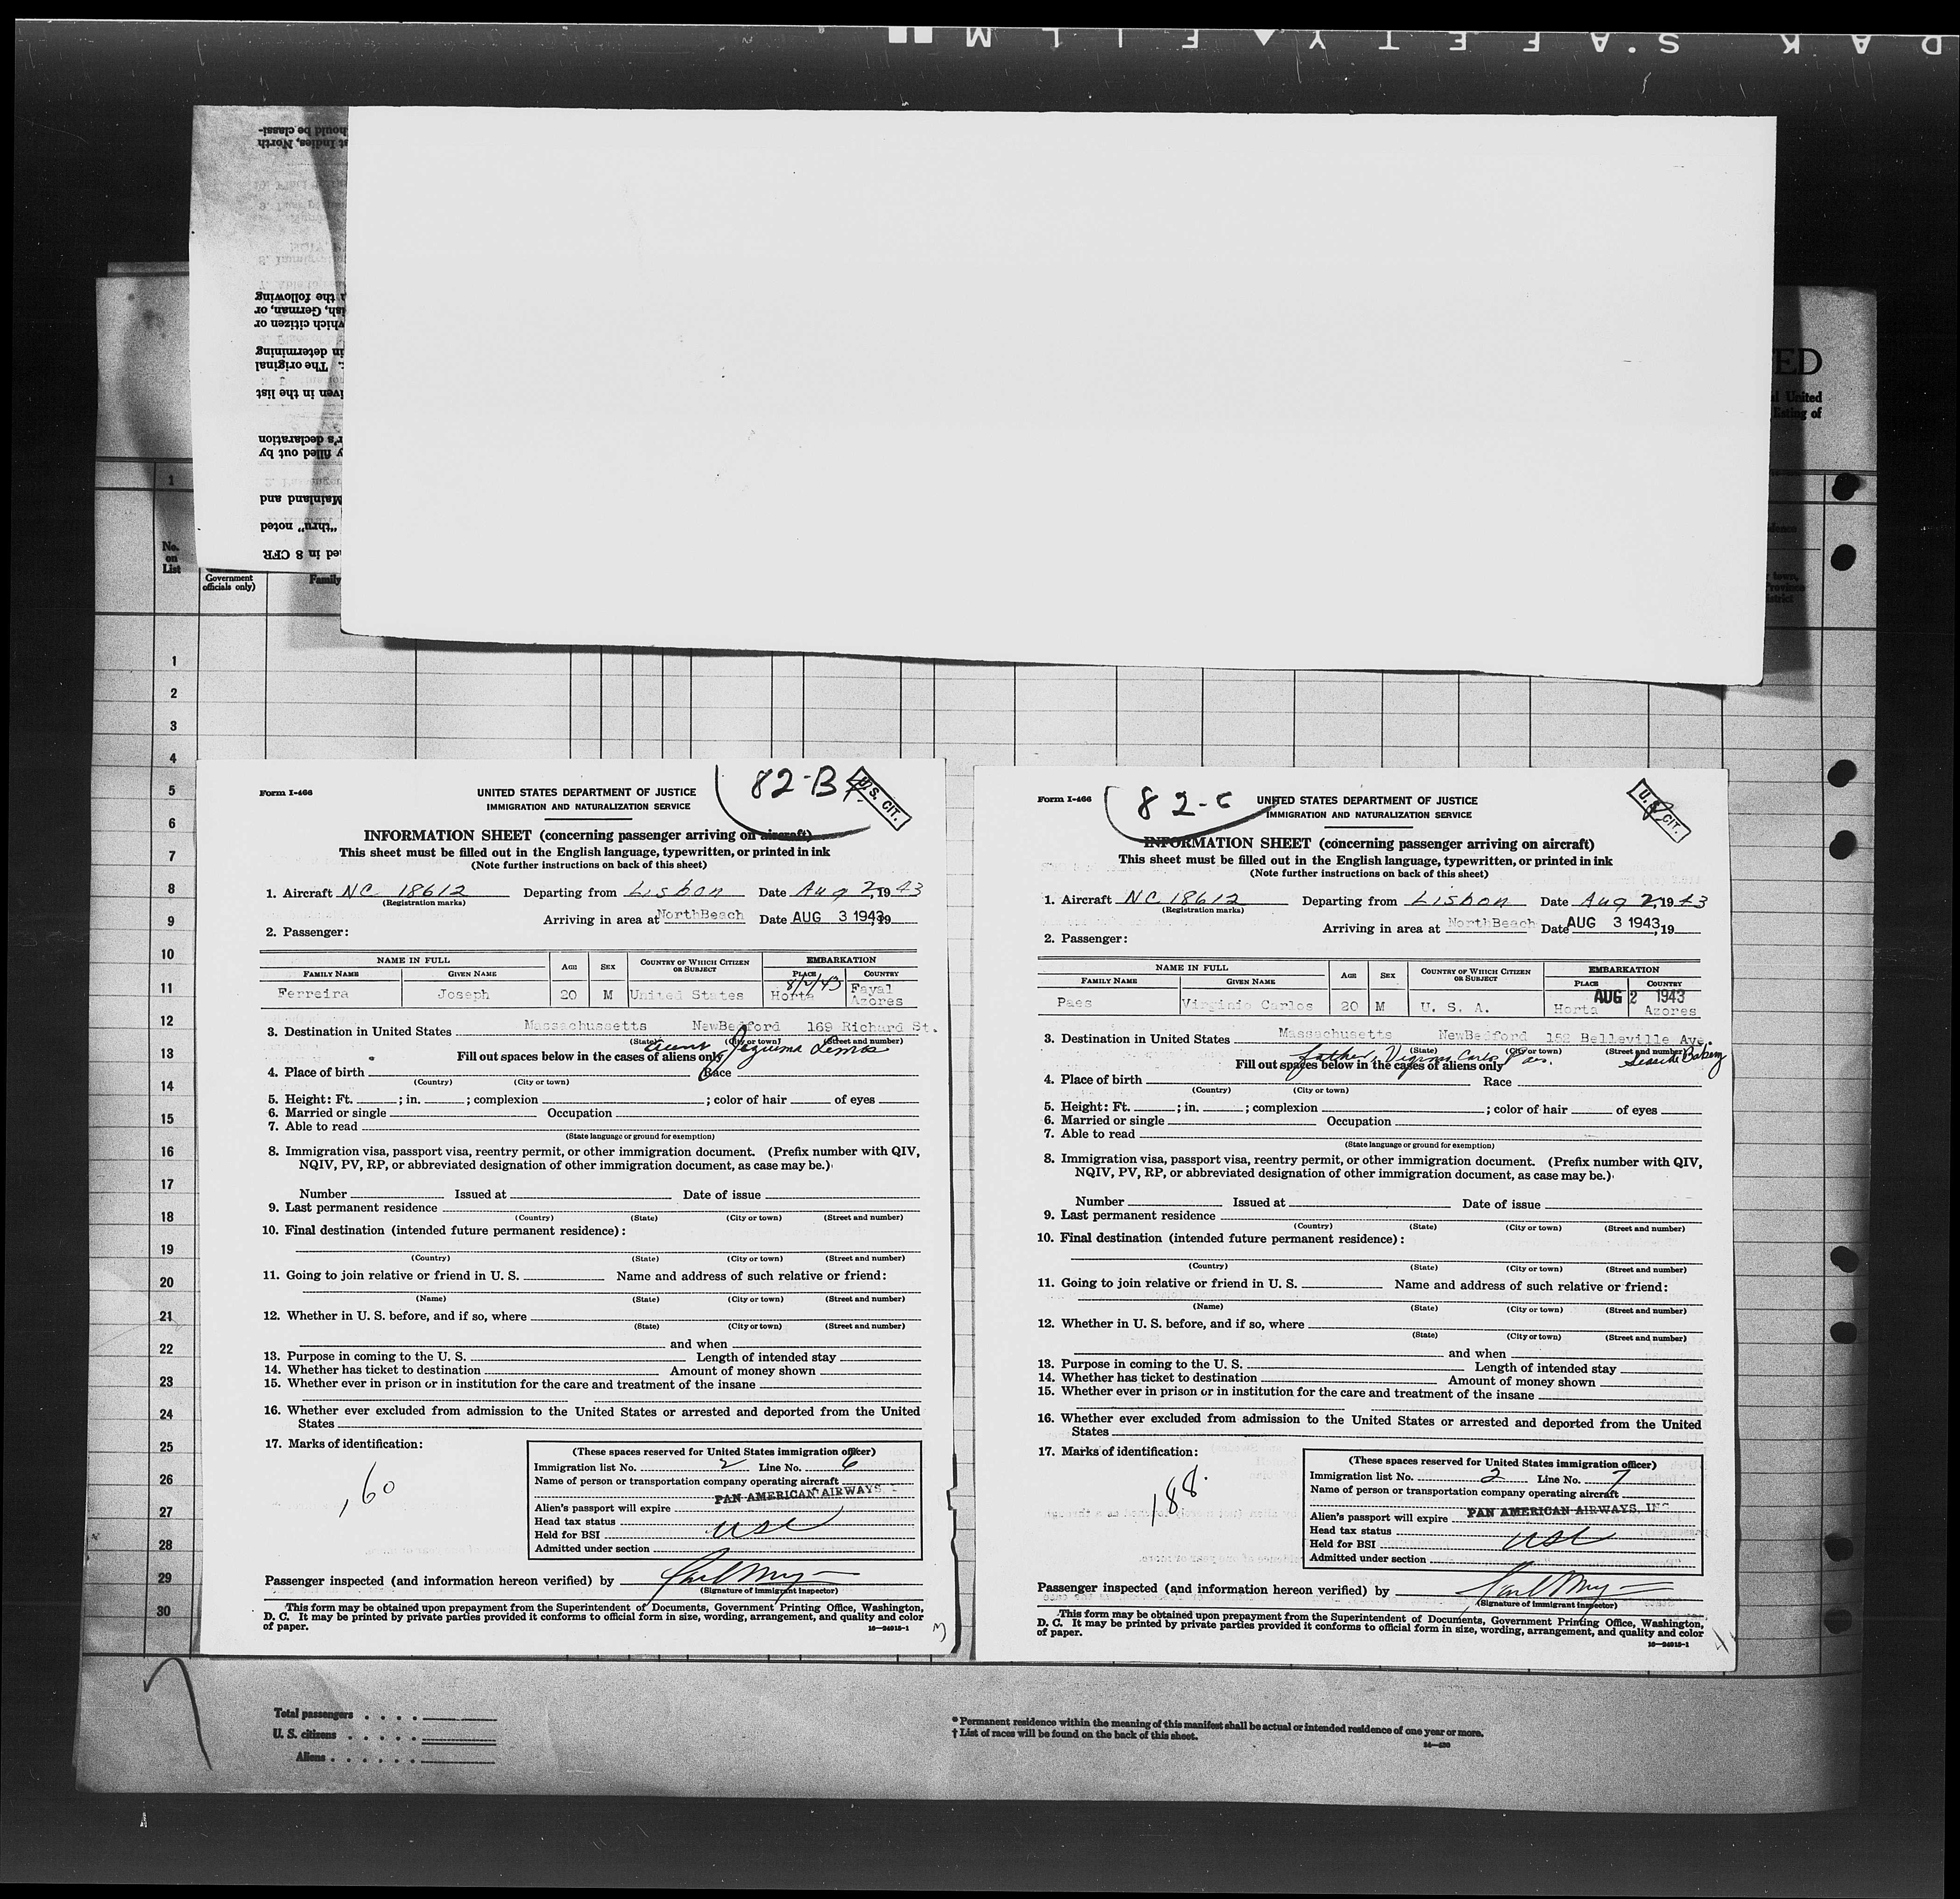 SAFETY FILM
ED
al United
listing of
1
No.
on
List
Government
officials only)
Family
1
2
3
4
5
6
7
8
9
10
11
12
13
14
15
16
17
18
19
20
21
22
23
24
25
26
27
28
29
30
Form I-466
82-B
U.S. CIT.
UNITED STATES DEPARTMENT OF JUSTICE
IMMIGRATION AND NATURALIZATION SERVICE
INFORMATION SHEET (concerning passenger arriving on aircraft)
This sheet must be filled out in the English language, typewritten, or printed in ink
(Note further instructions on back of this sheet)
1. Aircraft NC 18612 Departing from Lisbon Date Aug 2, 1943
(Registration marks)
Arriving in area at NorthBeach Date AUG 3 1943, 19
2. Passenger:
NAME IN FULL AGE SEX COUNTRY OF WHICH CITIZEN OR SUBJECT EMBARKATION
FAMILY NAME GIVEN NAME PLACE COUNTRY
8/2/43
Ferreira Joseph 20 M United States Horta Fayal Azores
3. Destination in United States Massachussetts NewBedford 169 Richard St.
(State) (City or town) (Street and number)
aunt
Lemos
Fill out spaces below in the cases of aliens only
4. Place of birth Race
(Country) (City or town)
5. Height: Ft. ; in. ; complexion ; color of hair of eyes
6. Married or single Occupation
7. Able to read
(State language or ground for exemption)
8. Immigration visa, passport visa, reentry permit, or other immigration document. (Prefix number with QIV,
NQIV, PV, RP, or abbreviated designation of other immigration document, as case may be.)
Number Issued at Date of issue
9. Last permanent residence
(Country) (State) (City or town) (Street and number)
10. Final destination (intended future permanent residence):
(Country) (State) (City or town) (Street and number)
11. Going to join relative or friend in U. S. Name and address of such relative or friend:
(Name) (State) (City or town) (Street and number)
12. Whether in U. S. before, and if so, where
(State) (City or town) (Street and number)
and when
13. Purpose in coming to the U. S. Length of intended stay
14. Whether has ticket to destination Amount of money shown
15. Whether ever in prison or in institution for the care and treatment of the insane
16. Whether ever excluded from admission to the United States or arrested and deported from the United
States
17. Marks of identification:
160
(These spaces reserved for United States immigration officer)
Immigration list No. 2 Line No. 6
Name of person or transportation company operating aircraft
PAN AMERICAN AIRWAYS
Alien's passport will expire
Head tax status USC
Held for BSI
Admitted under section
Passenger inspected (and information hereon verified) by
(Signature of immigrant inspector)
This form may be obtained upon prepayment from the Superintendent of Documents, Government Printing Office, Washington,
D. C. It may be printed by private parties provided it conforms to official form in size, wording, arrangement, and quality and color
of paper.
16—24915-1
3
Form I-466
82-C
U.S. CIT.
UNITED STATES DEPARTMENT OF JUSTICE
IMMIGRATION AND NATURALIZATION SERVICE
INFORMATION SHEET (concerning passenger arriving on aircraft)
This sheet must be filled out in the English language, typewritten, or printed in ink
(Note further instructions on back of this sheet)
1. Aircraft NC 18612 Departing from Lisbon Date Aug 2, 1943
(Registration marks)
Arriving in area at NorthBeach Date AUG 3 1943, 19
2. Passenger:
NAME IN FULL AGE SEX COUNTRY OF WHICH CITIZEN OR SUBJECT EMBARKATION
FAMILY NAME GIVEN NAME PLACE COUNTRY
AUG 2 1943
Paes Virginio Carlos 20 M U. S. A. Horta Azores
3. Destination in United States Massachusetts NewBedford 152 Belleville Ave.
(State) (City or town) (Street and number)
father, Carlos Paes. Seaside Bakery
Fill out spaces below in the cases of aliens only
4. Place of birth Race
(Country) (City or town)
5. Height: Ft. ; in. ; complexion ; color of hair of eyes
6. Married or single Occupation
7. Able to read
(State language or ground for exemption)
8. Immigration visa, passport visa, reentry permit, or other immigration document. (Prefix number with QIV,
NQIV, PV, RP, or abbreviated designation of other immigration document, as case may be.)
Number Issued at Date of issue
9. Last permanent residence
(Country) (State) (City or town) (Street and number)
10. Final destination (intended future permanent residence):
(Country) (State) (City or town) (Street and number)
11. Going to join relative or friend in U. S. Name and address of such relative or friend:
(Name) (State) (City or town) (Street and number)
12. Whether in U. S. before, and if so, where
(State) (City or town) (Street and number)
and when
13. Purpose in coming to the U. S. Length of intended stay
14. Whether has ticket to destination Amount of money shown
15. Whether ever in prison or in institution for the care and treatment of the insane
16. Whether ever excluded from admission to the United States or arrested and deported from the United
States
17. Marks of identification:
188
(These spaces reserved for United States immigration officer)
Immigration list No. 2 Line No. 7
Name of person or transportation company operating aircraft
PAN AMERICAN AIRWAYS, INC
Alien's passport will expire
Head tax status USC
Held for BSI
Admitted under section
Passenger inspected (and information hereon verified) by
(Signature of immigrant inspector)
This form may be obtained upon prepayment from the Superintendent of Documents, Government Printing Office, Washington,
D. C. It may be printed by private parties provided it conforms to official form in size, wording, arrangement, and quality and color
of paper.
16—24915-1
4
Total passengers
U. S. citizens
Aliens
* Permanent residence within the meaning of this manifest shall be actual or intended residence of one year or more.
† List of races will be found on the back of this sheet.